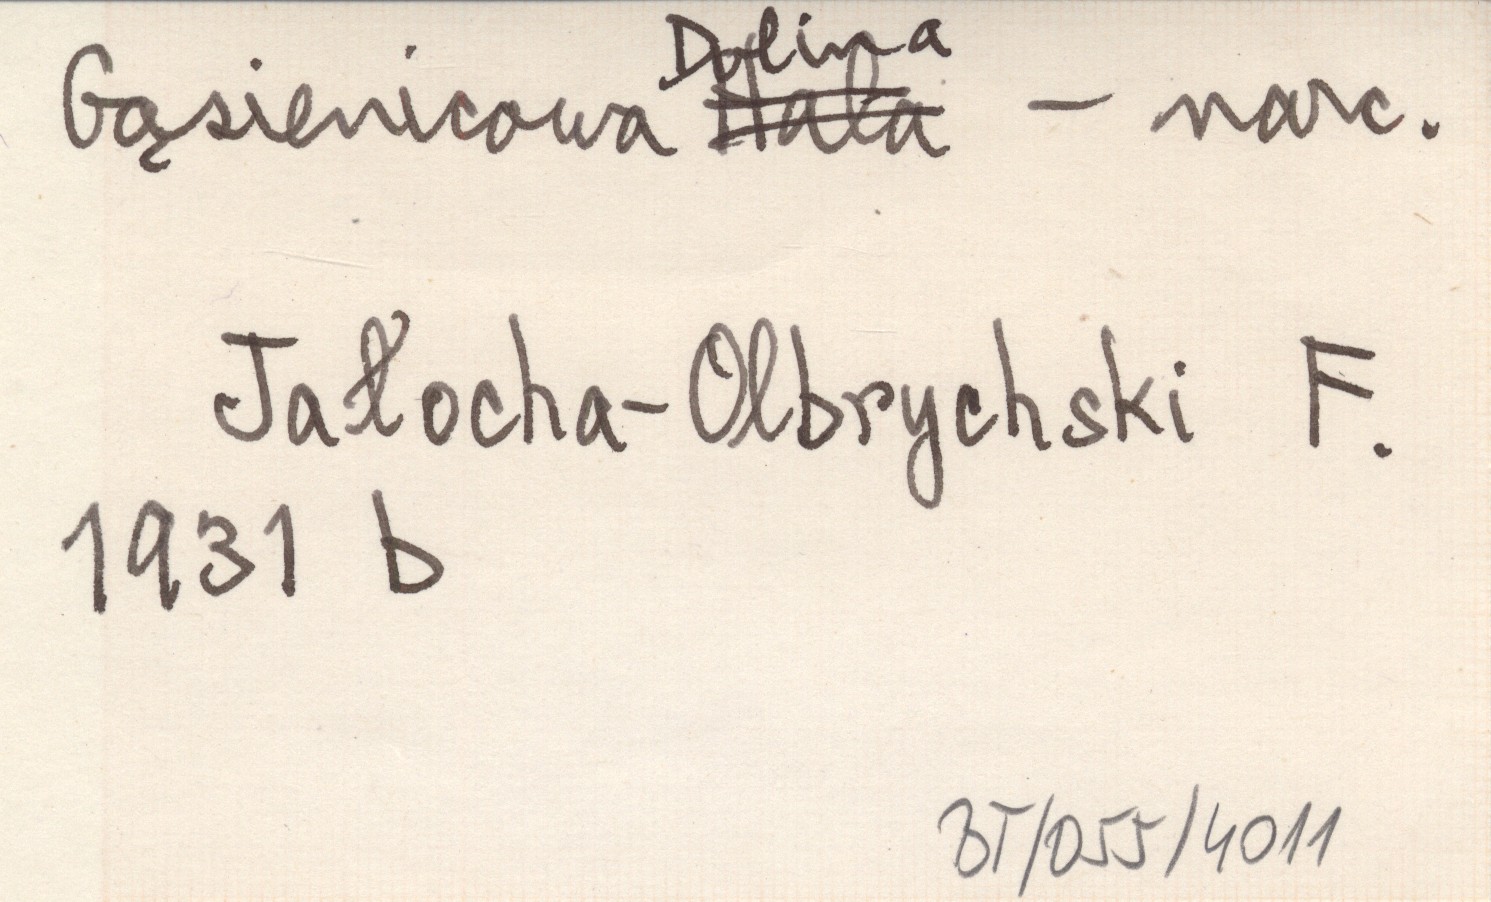 Gąsienicowa Dolina ~~Hala~~ – narc.
Jałocha-Olbrychski F.
1931 b
BT/055/4011